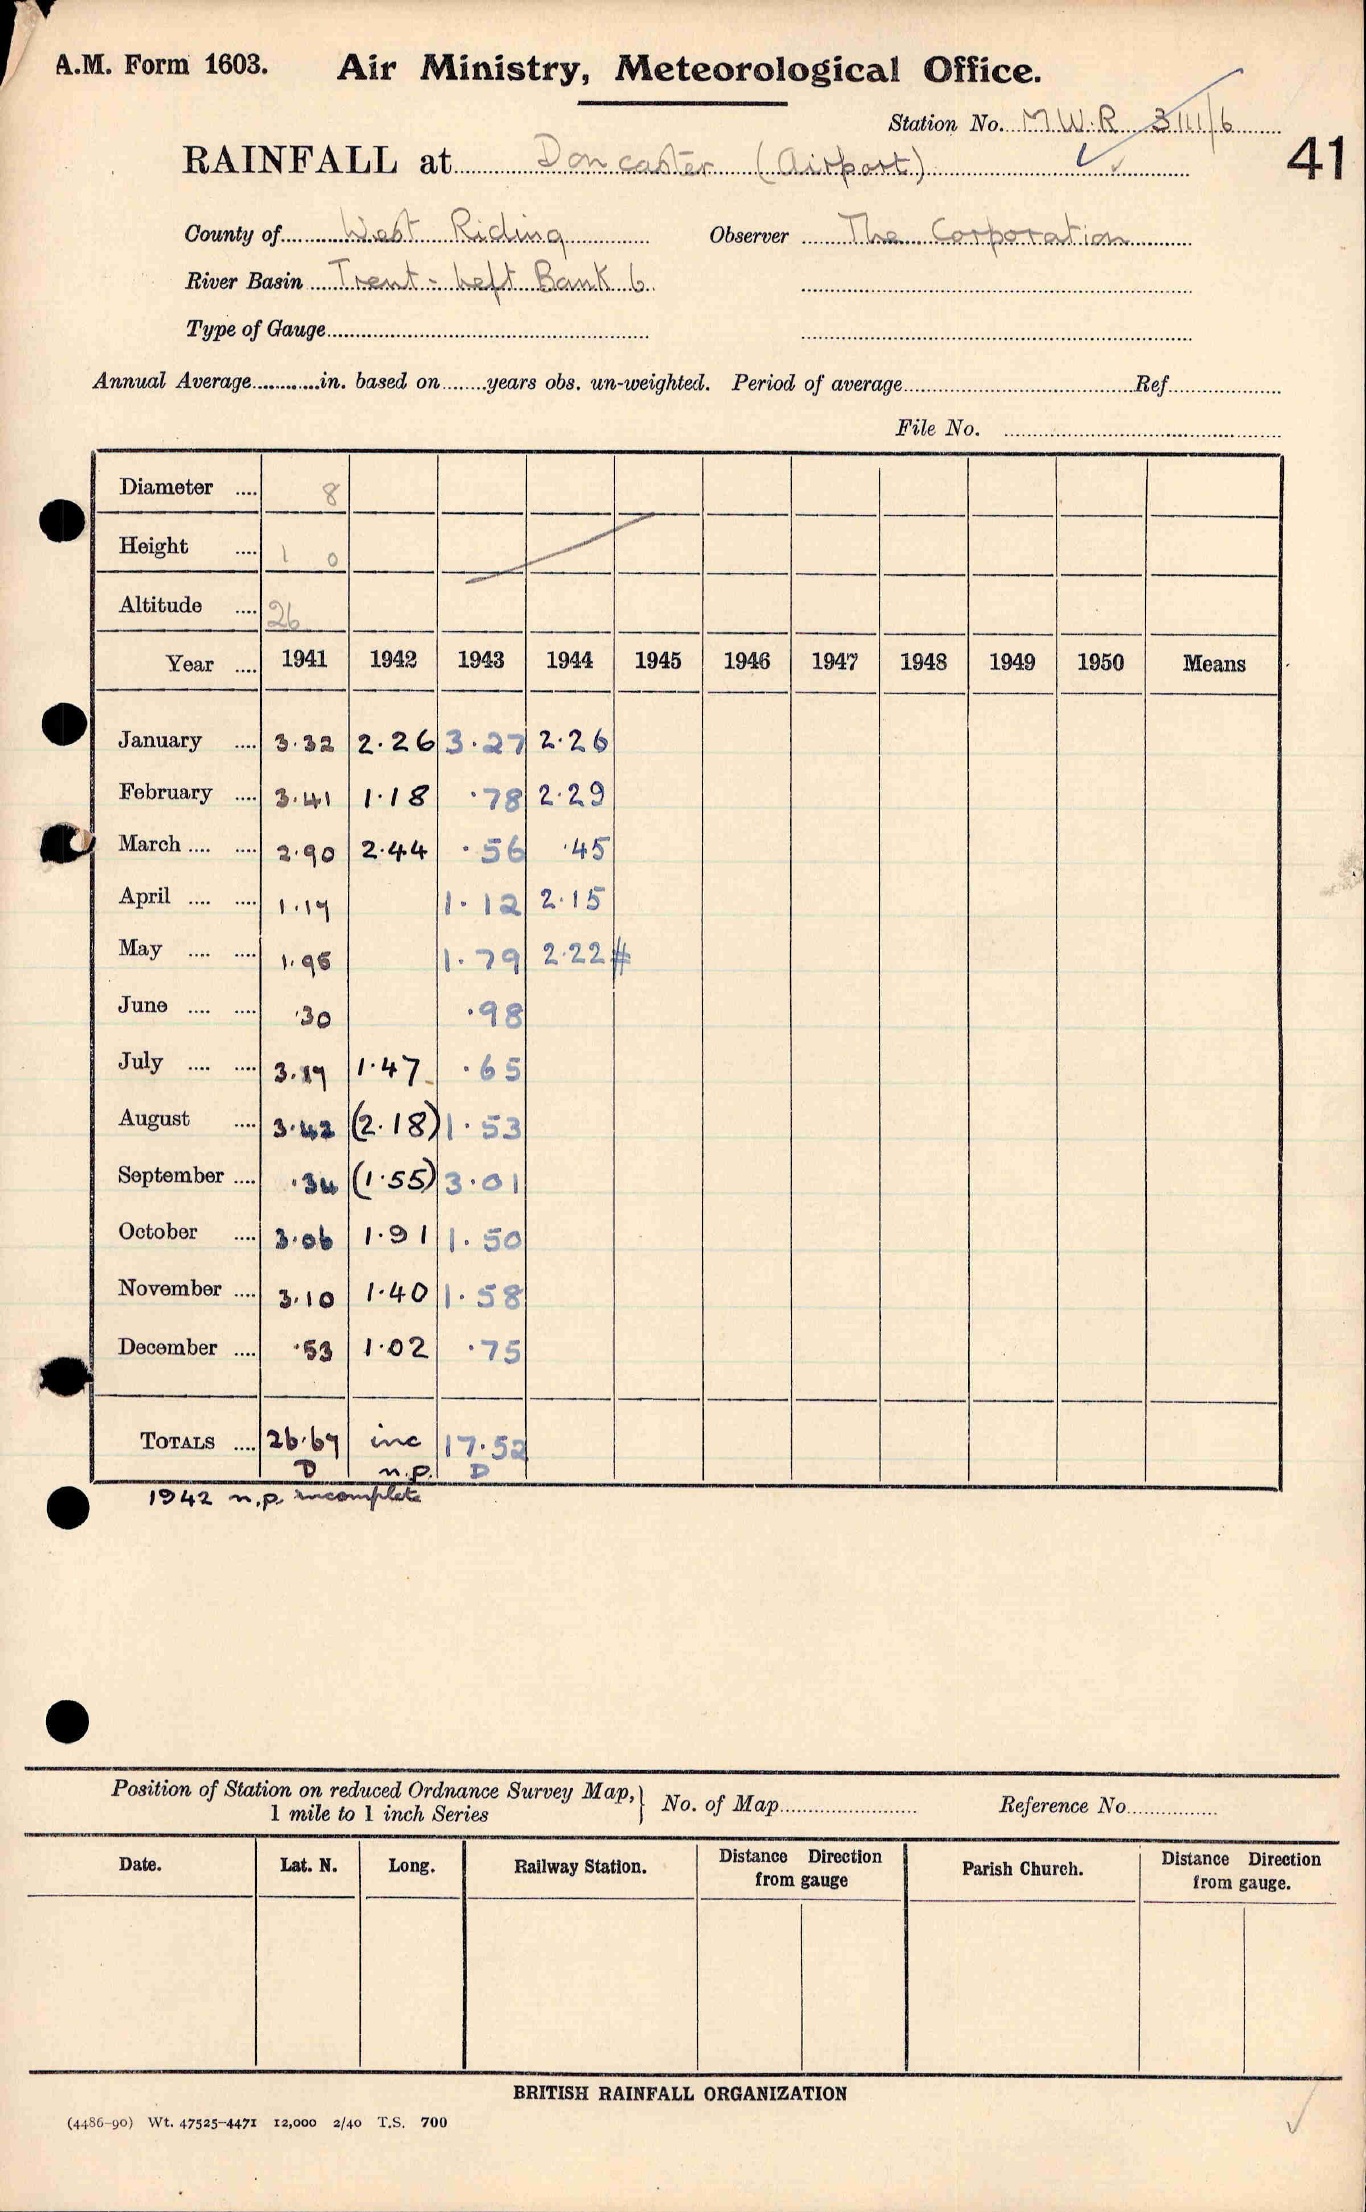 A.M. Form 1603. Air Ministry, Meteorological Office.
Station No. M W.R 3111/6
RAINFALL at Doncaster (Airport) 41
County of West Riding Observer The Corporation
River Basin Trent - Left Bank 6
Type of Gauge
Annual Average in. based on years obs. un-weighted. Period of average Ref
File No.
Diameter .... 8
Height .... 1 0
Altitude .... 26
Year .... 1941 1942 1943 1944 1945 1946 1947 1948 1949 1950 Means
January .... 3.32 2.26 3.27 2.26
February .... 3.41 1.18 .78 2.29
March .... .... 2.90 2.44 .56 .45
April .... .... 1.17 1.12 2.15
May .... .... 1.95 1.79 2.22 #
June .... .... .30 .98
July .... .... 3.17 1.47 .65
August .... 3.42 (2.18) 1.53
September .... .34 (1.55) 3.01
October .... 3.06 1.91 1.50
November .... 3.10 1.40 1.58
December .... .53 1.02 .75
TOTALS .... 26.67 inc 17.52
D n.p. D
1942 n.p. incomplete
Position of Station on reduced Ordnance Survey Map, } No. of Map Reference No.
1 mile to 1 inch Series
Date. Lat. N. Long. Railway Station. Distance Direction from gauge Parish Church. Distance Direction from gauge.
BRITISH RAINFALL ORGANIZATION
(4486-90) Wt. 47525-4471 12,000 2/40 T.S. 700